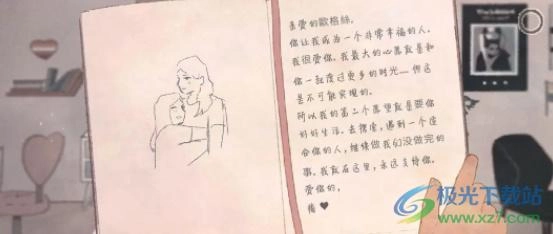 親愛的歐格絲,
你让我成为一个非常幸福的人。
我很爱你。我最大的心愿就是和
你一起度过更多的时光——但这
是不可能实现的。
所以我的第二个愿望就是要你
好好生活。去探索,遇到一个适
合你的人,继续做我们没做完的
事。我就在这里,永远支持你。
爱你的,
极光下载站
www.xz7.com